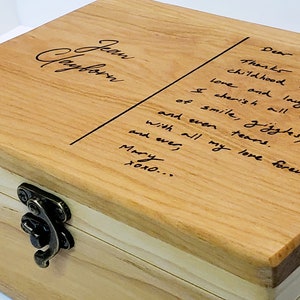 Jean
Clayborn
Dear
Thanks
childhood
love and
I cherish all
of smiles, giggles,
and even tears.
with all my love
and ever,
Mary
xoxo...